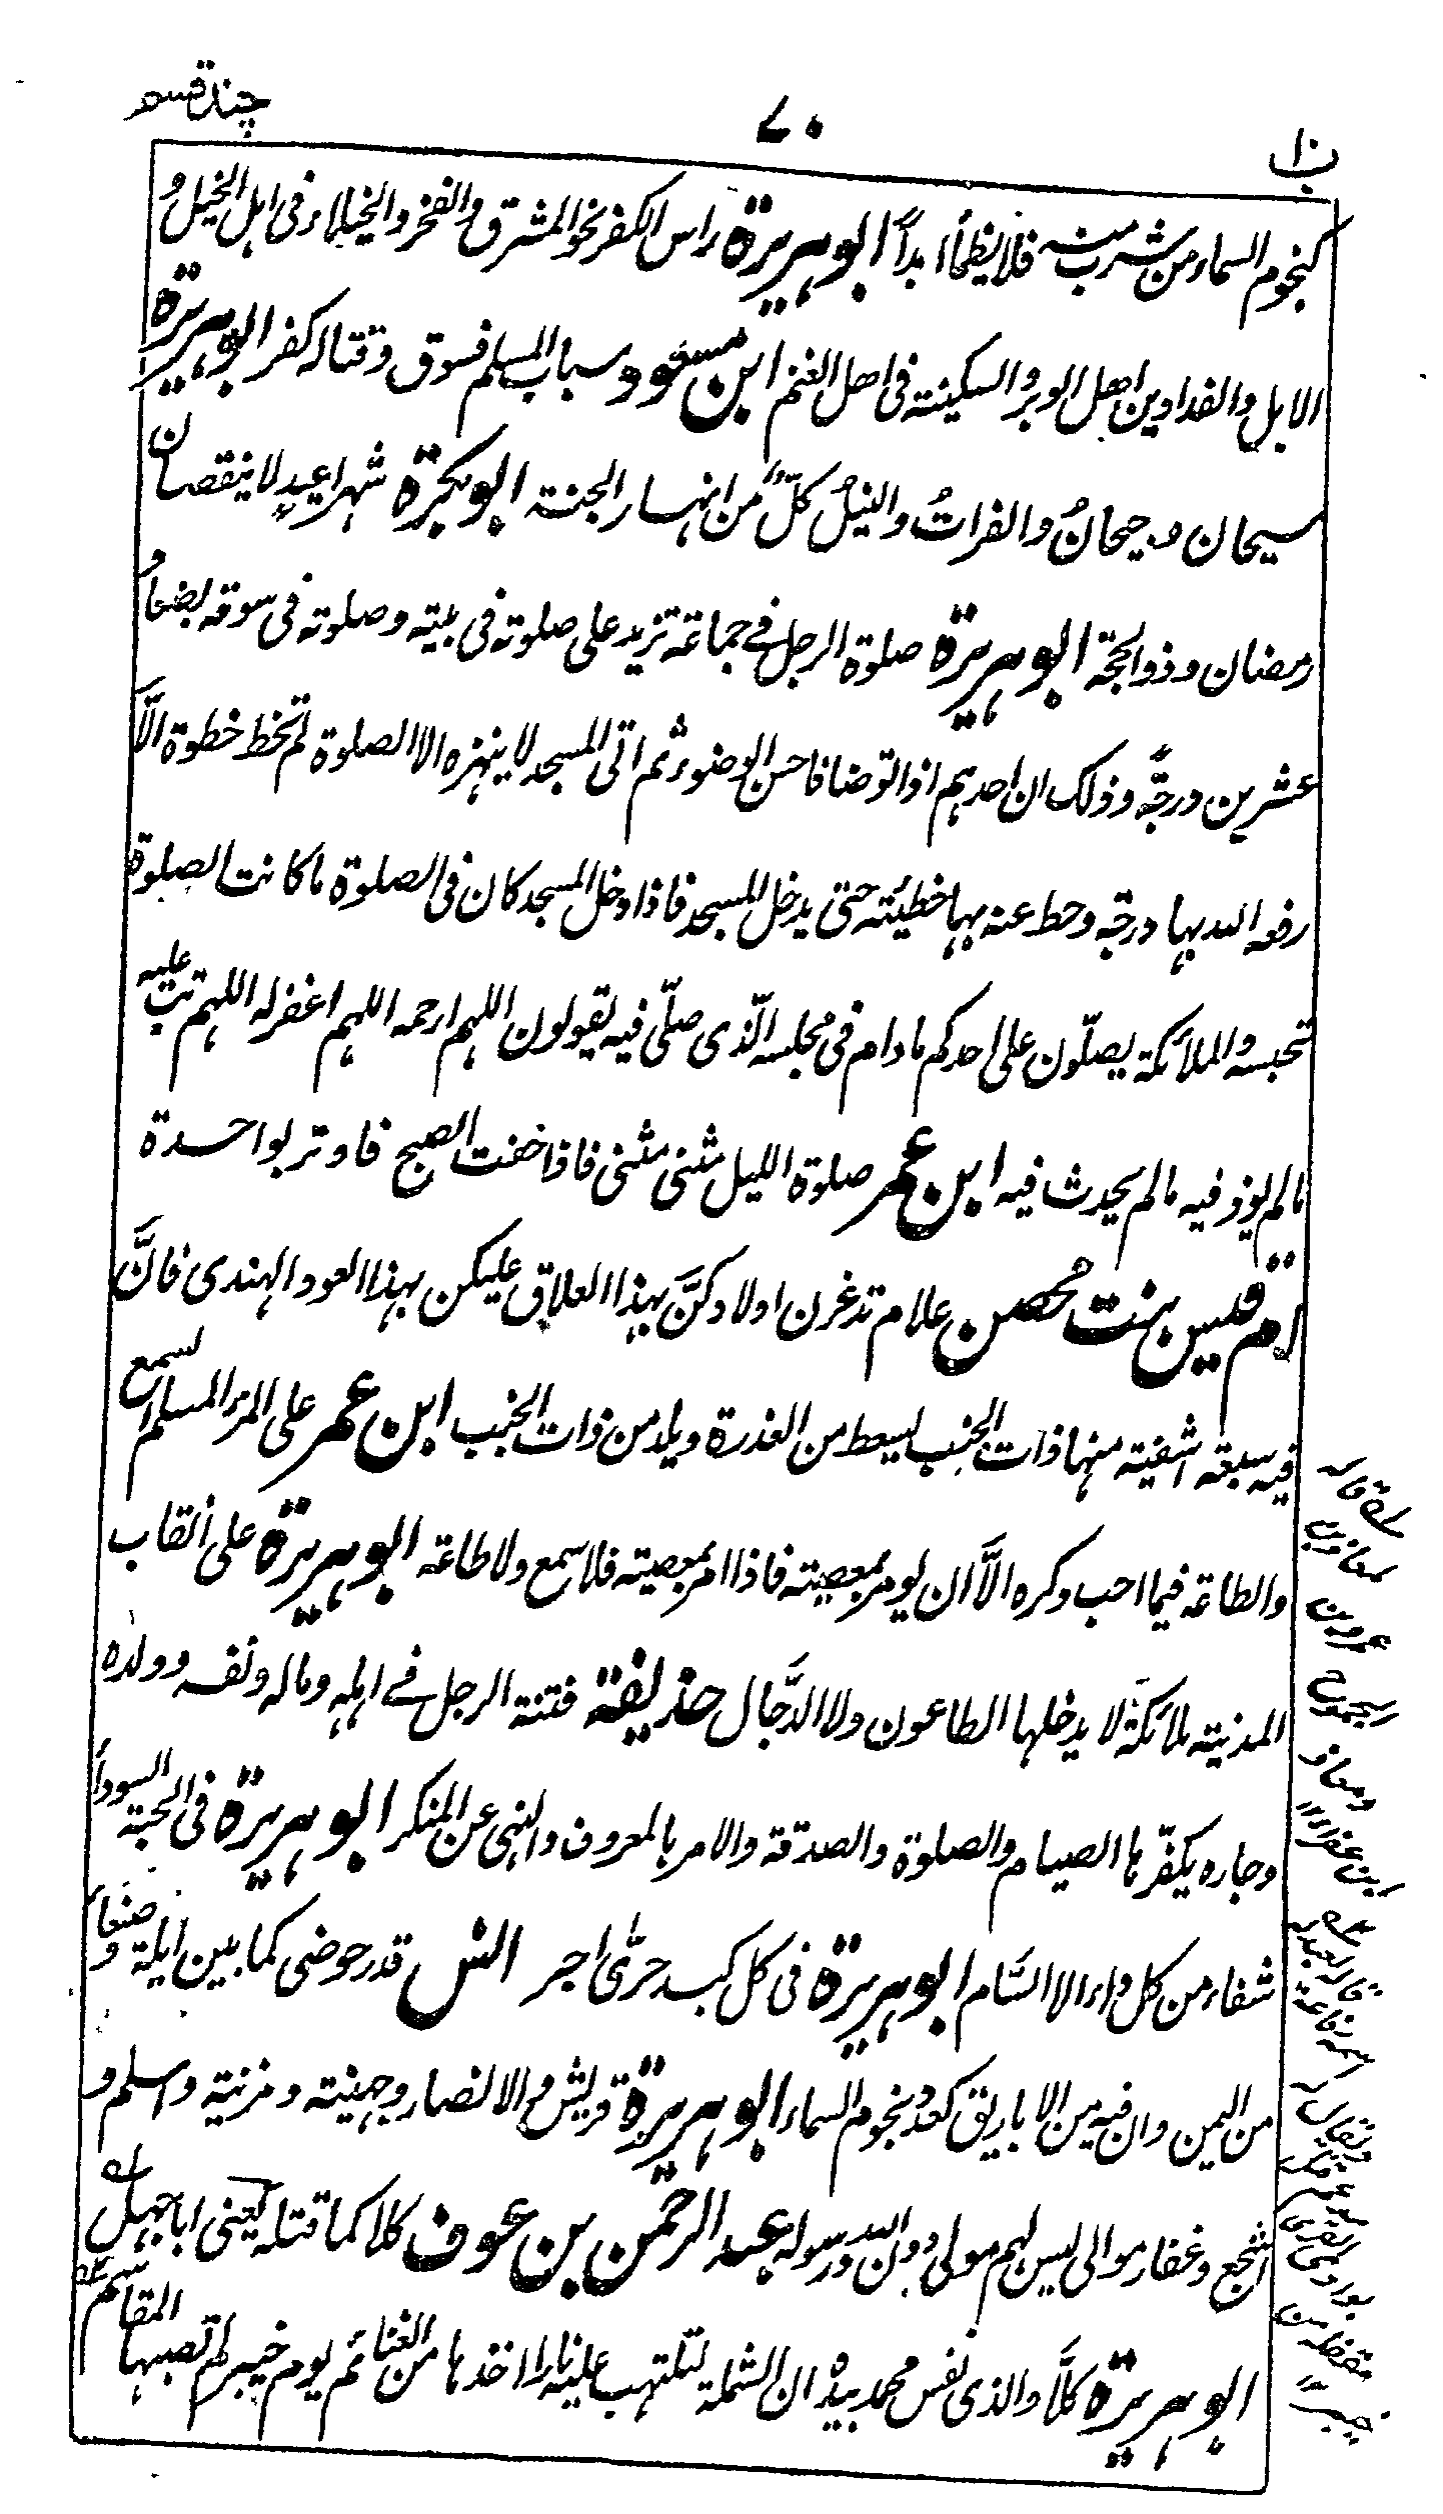 چند قسم
۷۰
ب ۱۰
کنجوم السماء من شرب منه فلا یظمأ ابداً ابو ہریرۃ راس الکفر نحو المشرق والفخر والخیلاء فی اہل الخیل و
الابل والفدادین اھل الوبر والسکینۃ فی اھل الغنم ابن مسعود سباب المسلم فسوق وقتالہ کفر ابو ہریرۃ
سیحان وجیحانُ والفراتُ والنیلُ کلٌّ من انہار الجنۃ ابو بکرۃ شہرا عیدٍ لا ینقصان
رمضان وذو الحجۃ ابو ہریرۃ صلوۃ الرجل فے جماعۃ تزید علی صلوتہ فی بیتہ وصلوتہ فی سوقہ بضعاً و
عشرین درجۃً وذلک ان احدہم اذا توضا فاحسن الوضوء ثم اتی المسجد لا ینہزہ الا الصلوۃ لم تخط خطوۃ الّا
رفعہ اللہ بہا درجۃ وحط عنہ بہا خطیئۃ حتی یدخل المسجد فاذا دخل المسجد کان فی الصلوۃ ما کانت الصلوۃ
تحبسہ والملائکۃ یصلّون علی احدکم ما دام فی مجلسہ الّذی صلّی فیہ یقولون اللہم ارحمہ اللہم اغفر لہ اللہم تب علیہ
مالم یوذ فیہ مالم یحدث فیہ ابن عمر صلوۃ اللیل مثنی مثنی فاذا خفت الصبح فاوتر بواحدۃ
ام قیس بنت محصن علام تدغرن اولادکنّ بہذا العلاق علیکن بہذا العود الہندی فانّ
فیہ سبعۃ اشفیۃ منہا ذات الجنب یسعط من العذرۃ ویلد من ذات الجنب ابن عمر علی المرء المسلم السمع
والطاعۃ فیما احب وکرہ الّا ان یومر بمعصیۃ فاذا امر بمعصیۃ فلا سمع ولا طاعۃ ابو ہریرۃ علی انقاب
المدینۃ ملائکۃ لا یدخلہا الطاعون ولا الدّجال حذیفۃ فتنۃ الرجل فے اہلہ ومالہ ونفسہ وولدہ
وجارہ یکفّرہا الصیام والصلوۃ والصدقۃ والامر بالمعروف والنہی عن المنکر ابو ہریرۃ فی الحبۃ السوداً
شفاء من کل داء الا السّام ابو ہریرۃ فی کل کبد حرّی اجر انس قدر حوضی کما بین ایلۃ وصنعاً
من الیمن وان فیہ من الاباریق کعدد نجوم السماء ابو ہریرۃ قریش والانصار وجہینۃ ومزینۃ واسلم و
اشجع وغفار موالی لیس لہم مولی دون اللہ ورسولہ عبد الرحمن بن عوف کلا کما قتلہ یعنی ابا جہل
ابو ہریرۃ کلّا والذی نفس محمد بیدہ ان الشملۃ لتلتہب علیہ نارا اخذہا من الغنائم یوم خیبر لم تصبہا المقاسم
قالہ
لمعاذ بن
عمرو بن
الجموح
ومعاذ
ابن عفراء ۱۲